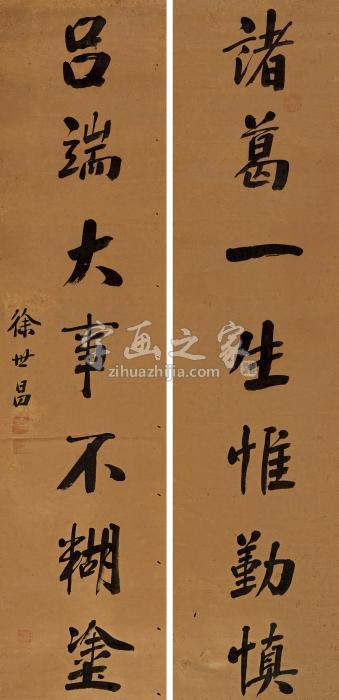 諸葛一生惟勤慎
吕端大事不糊塗
徐世昌
字画之家
zihuazhijia.com